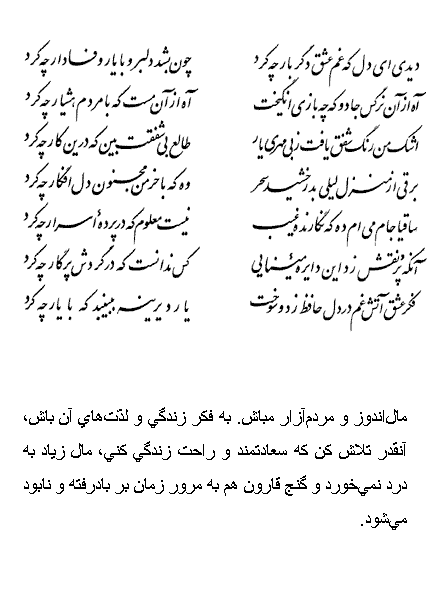 دیدی ای دل که غم عشق دگر بار چه کرد چون بشد دلبر و با یار وفادار چه کرد
آه از آن نرگس جادو که چه بازی انگیخت آه از آن مست که با مردم هشیار چه کرد
اشک من رنگ شفق یافت ز بی‌مهری یار طالع بی‌شفقت بین که درین کار چه کرد
برقی از منزل لیلی بدرخشید سحر وه که با خرمن مجنون دل افگار چه کرد
ساقیا جام می‌ام ده که نگارنده غیب نیست معلوم که در پرده اسرار چه کرد
آنکه پر نقش زد این دایره مینایی کس ندانست که در گردش پرگار چه کرد
فکر عشق آتش غم در دل حافظ زد و سوخت یار دیرینه ببینید که با یار چه کرد
مال‌اندوز و مردم‌آزار مباش. به فکر زندگي و لذّت‌هاي آن باش،
آنقدر تلاش كن كه سعادتمند و راحت زندگي كني، مال زياد به
درد نمي‌خورد و گنج قارون هم به مرور زمان بر بادرفته و نابود
مي‌شود.